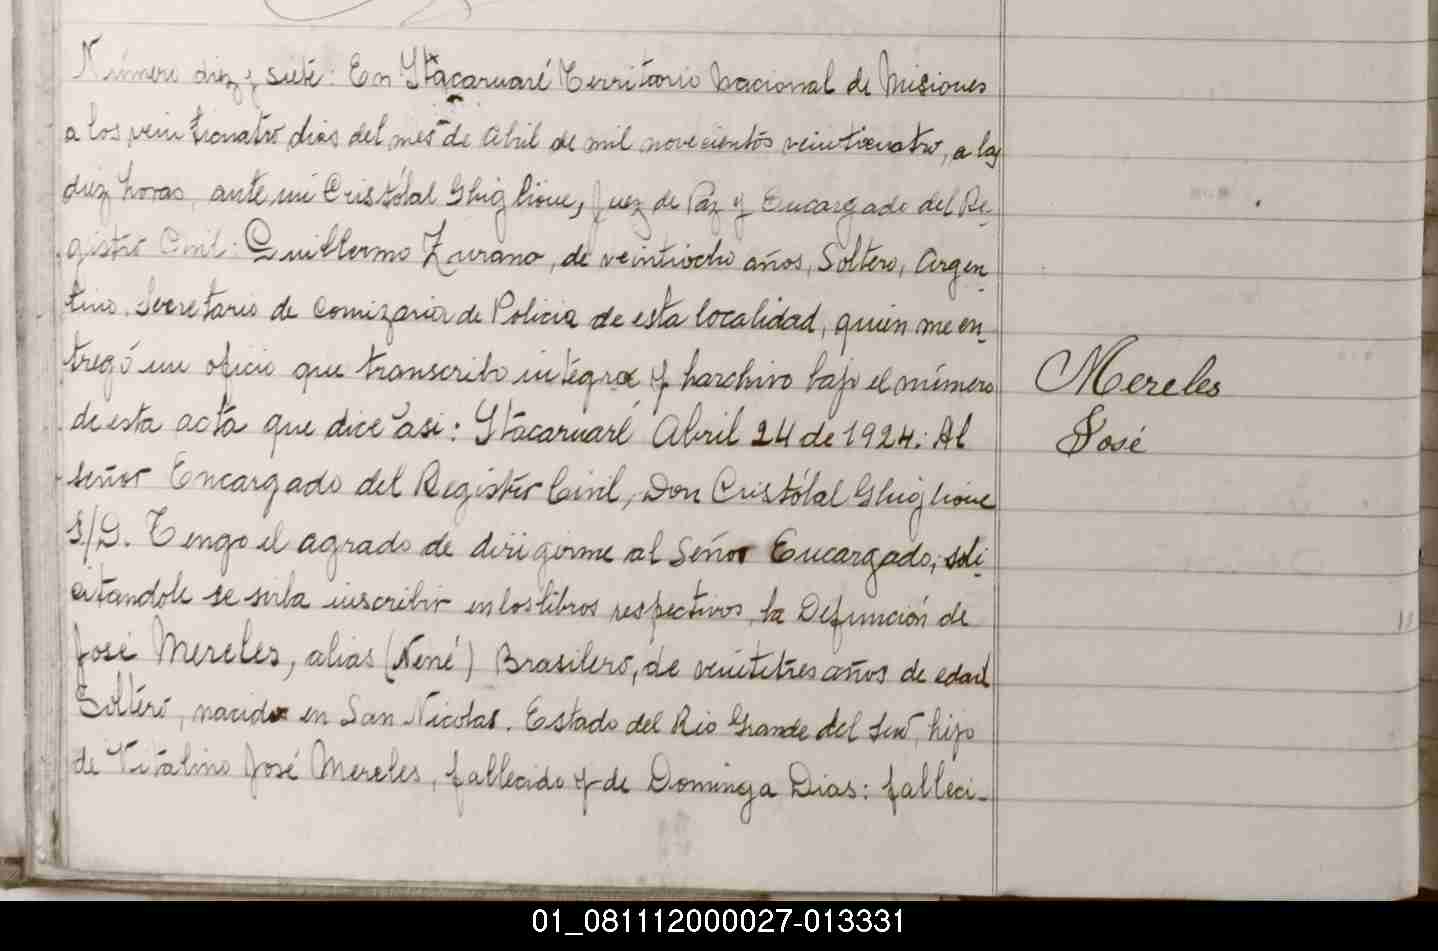 Número diez y siete: En Ytacaruaré Territorio Nacional de Misiones
a los veinticuatro dias del mes de Abril de mil novecientos veinticuatro, a las
diez horas, ante mi Cristóbal Ghiglione, Juez de Paz y Encargado del Re-
gistro Civil: Guillermo Zurano, de veintiocho años, Soltero, Argen-
tino, Secretario de Comizaria de Policia de esta localidad, quien me en-
tregó un oficio que transcribo integro y harchivo bajo el número
de esta acta que dice asi: Ytacaruaré Abril 24 de 1924. Al
señor Encargado del Registro Civil, Don Cristóbal Ghiglione
S/D. Tengo el agrado de dirigirme al Señor Encargado, soli-
citandole se sirba inscribir en los libros respectivos, la Defunción de
José Mereles, alias (Nené) Brasilero, de veintitres años de edad
Soltero, nacido en San Nicolas. Estado del Rio Grande del Sud, hijo
de Vitalino José Mereles, fallecido y de Dominga Dias: falleci-
Mereles
José
01_081112000027-013331